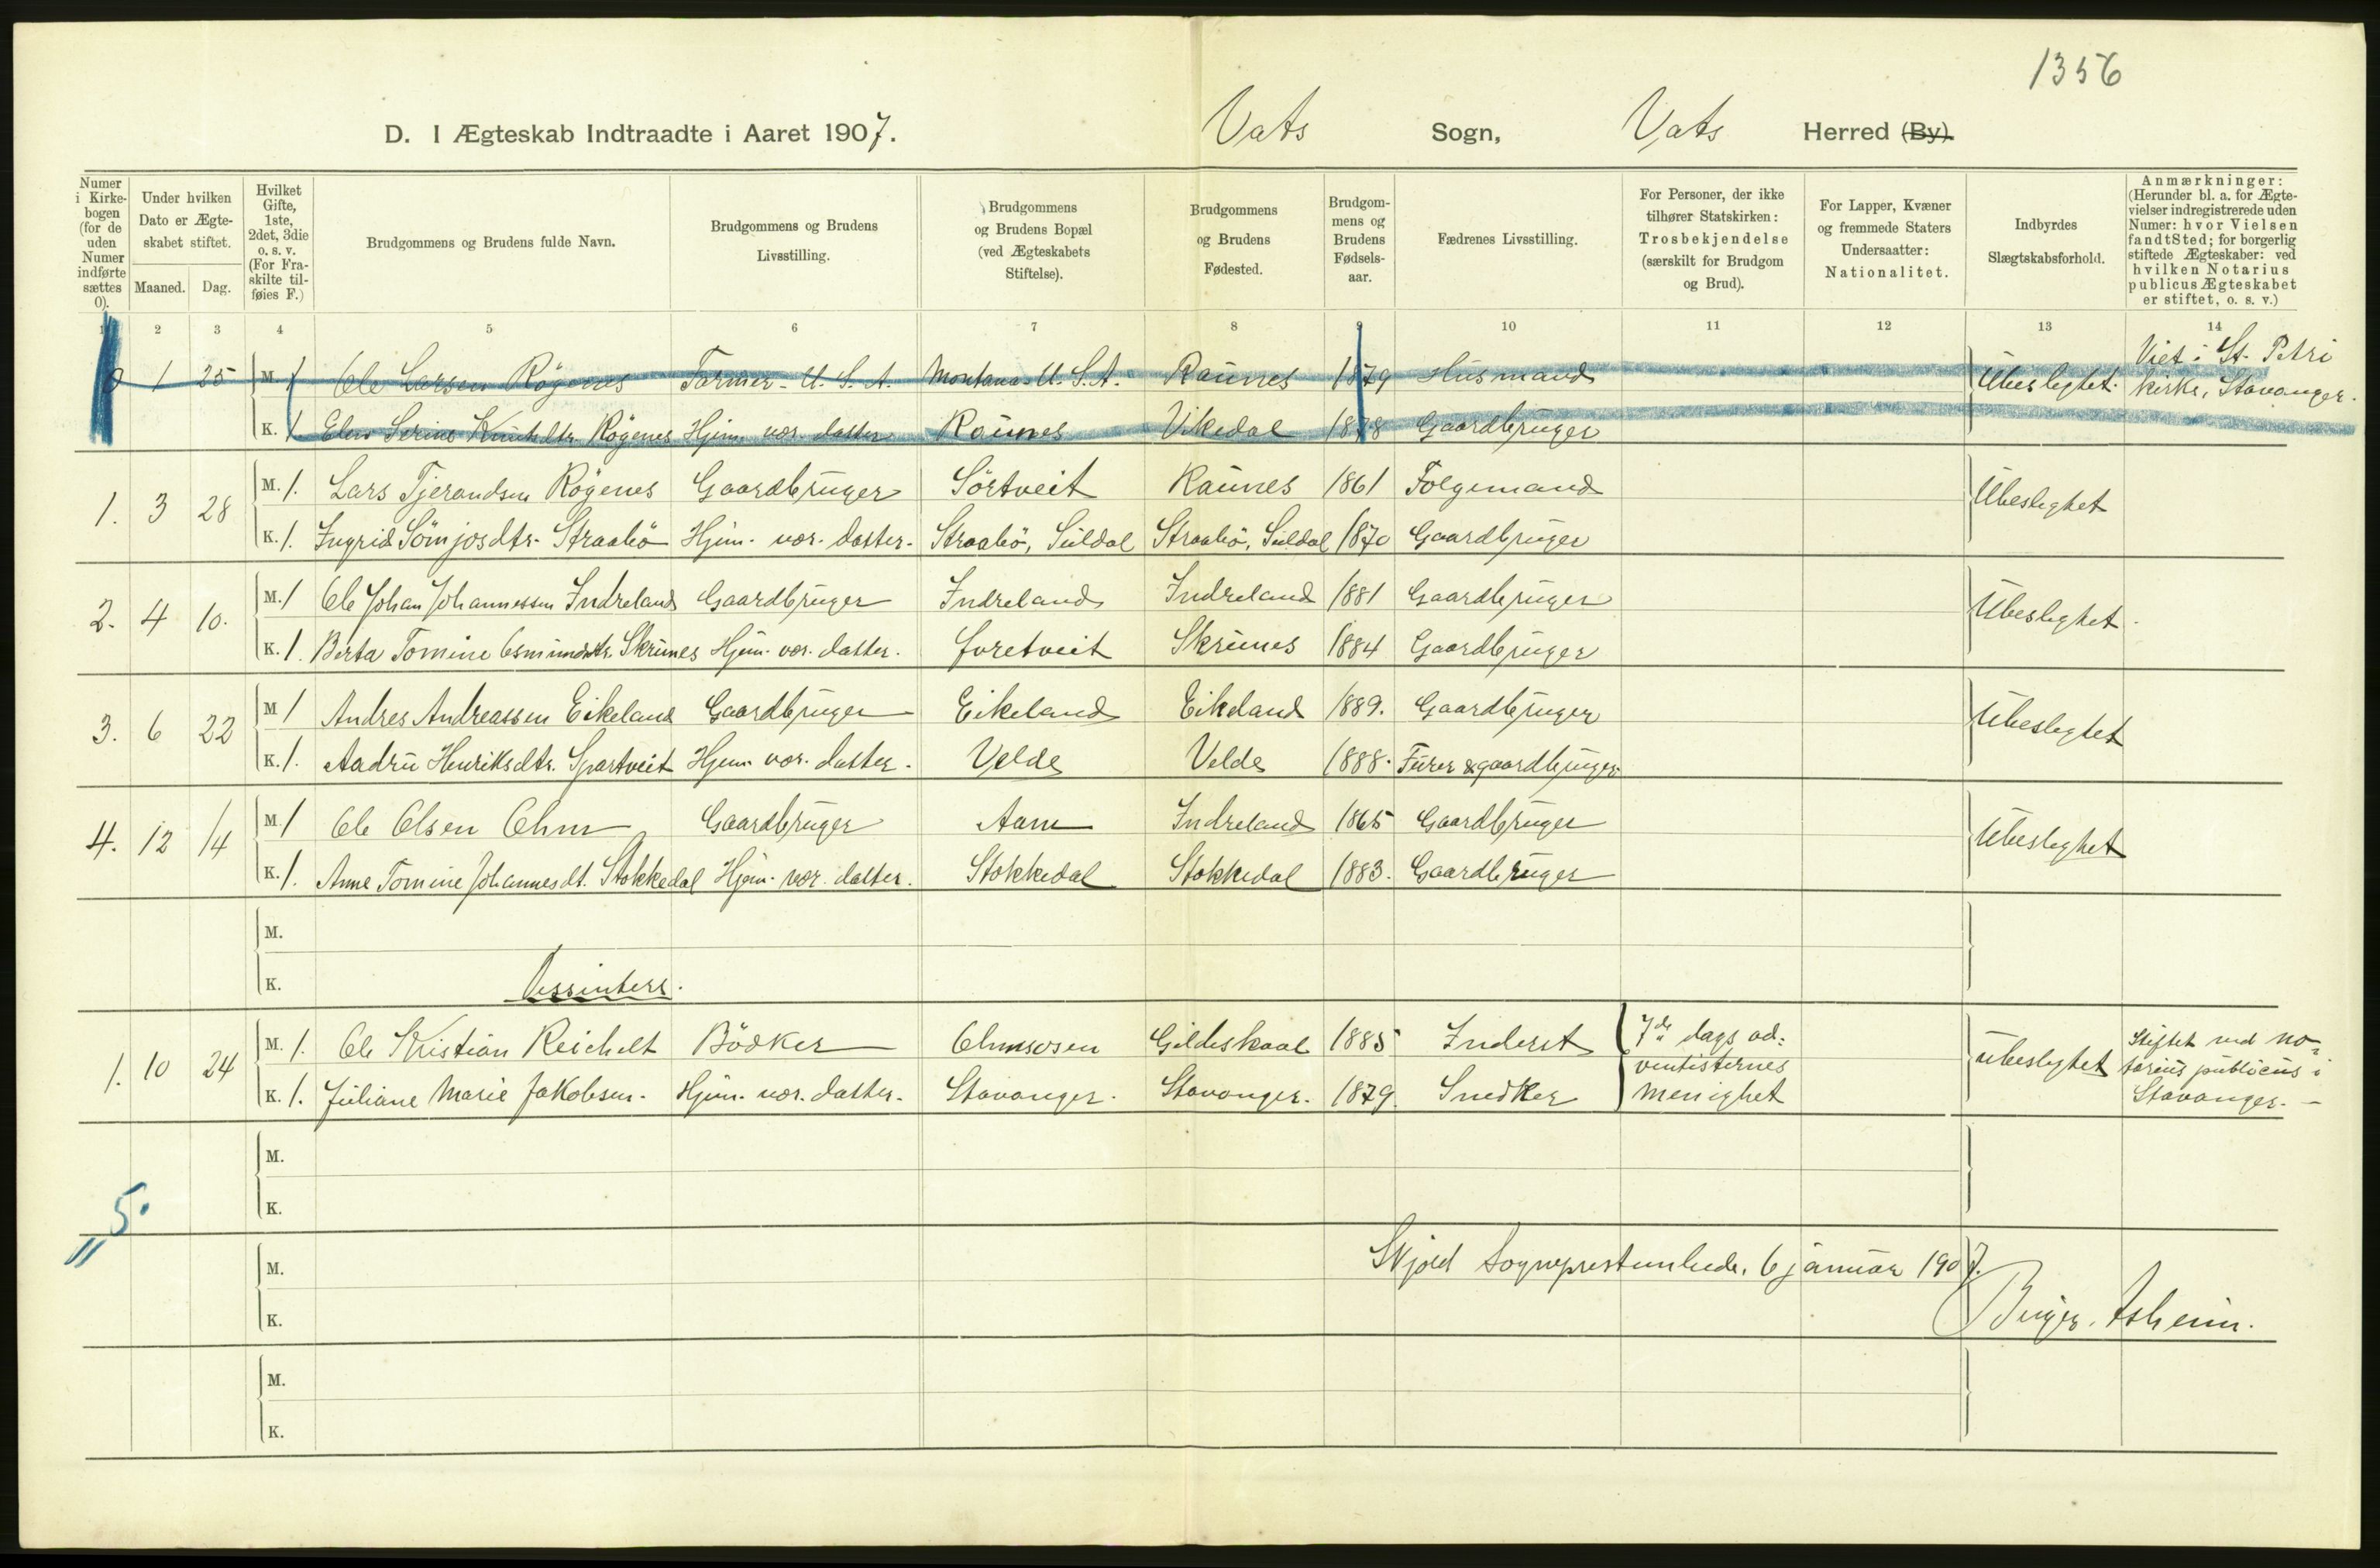 1356
D. I Ægteskab Indtraadte i Aaret 1907. Vats Sogn, Vats Herred (By).
Numer i Kirkebogen (for de uden Numer indførte sættes 0).
Under hvilken Dato er Ægteskabet stiftet.
Maaned. Dag.
Hvilket Gifte, 1ste, 2det, 3die o. s. v. (For Fraskilte tilføies F.)
Brudgommens og Brudens fulde Navn.
Brudgommens og Brudens Livsstilling.
Brudgommens og Brudens Bopæl (ved Ægteskabets Stiftelse).
Brudgommens og Brudens Fødested.
Brudgommens og Brudens Fødselsaar.
Fædrenes Livsstilling.
For Personer, der ikke tilhører Statskirken: Trosbekjendelse (særskilt for Brudgom og Brud).
For Lapper, Kvæner og fremmede Staters Undersaatter: Nationalitet.
Indbyrdes Slægtskabsforhold.
Anmærkninger: (Herunder bl. a. for Ægtevielser indregistrerede uden Numer: hvor Vielsen fandt Sted; for borgerlig stiftede Ægteskaber: ved hvilken Notarius publicus Ægteskabet er stiftet, o. s. v.)
1 2 3 4 5 6 7 8 9 10 11 12 13 14
0 1 25 M. 1 Ole Larsen Rögenes Farmer - U. S. A. Montana - U. S. A. Raunes 1879 Husmand Ubeslegtet. Viet i St. Petri kirke, Stavanger.
K. 1 Elen Serine Knutsdtr. Rögenes Hjem. vær. datter Raunes Vikedal 1878 Gaardbruger
1. 3 28 M. 1. Lars Tjerandsen Rögenes Gaardbruger Sörtveit Raunes 1861 Folgemand Ubeslegtet
K. 1. Ingrid Straabö Hjem. vær. datter. Straabö, Suldal Straabö, Suldal 1870 Gaardbruger
2. 4 10. M. 1 Ole Johan Johannessen Indreland Gaardbruger Indreland Indreland 1881 Gaardbruger Ubeslegtet.
K. 1. Berta Tomine Osmundsdtr. Skrunes Hjem. vær. datter. Skrunes 1884 Gaardbruger
3. 6 22 M. 1 Andres Andreassen Eikeland Gaardbruger Eikeland Eikeland 1889. Gaardbruger Ubeslegtet
K. 1. Henriksdtr. Spartveit Hjem. vær. datter. Velde Velde 1888. & gaardbruger.
4. 12 14 M. 1 Ole Olsen Gaardbruger Indreland 1865 Gaardbruger Ubeslegtet
K. 1. Anne Tomine Johannesdt. Stokkedal Hjem. vær. datter. Stokkedal Stokkedal 1883. Gaardbruger
M.
K. Dissinters.
1. 10 24 M. 1. Ole Kristian Reichelt Bödker Ølmsosen Gildeskaal 1885 Inderst 7de dags adventisternes menighet ubeslegtet Stiftet ved notarius publicus i Stavanger. –
K. 1. Juliane Marie Jakobsen. Hjem. vær. datter. Stavanger. Stavanger. 1879. Snedker
M.
K.
5.
M. Skjold sogneprestembede, 6 januar 1907.
K. Birger. Asheim.
M.
K.